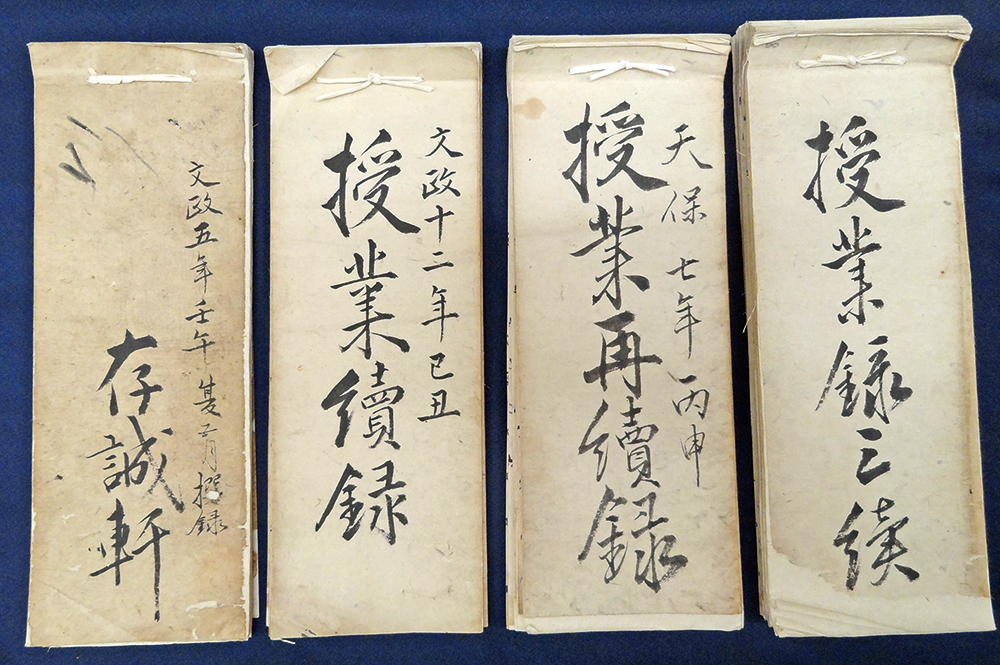 文政五年壬午夏五月撰録
存誠軒
文政十二年己丑
授業續録
天保七年丙申
授業再續録
授業録三续